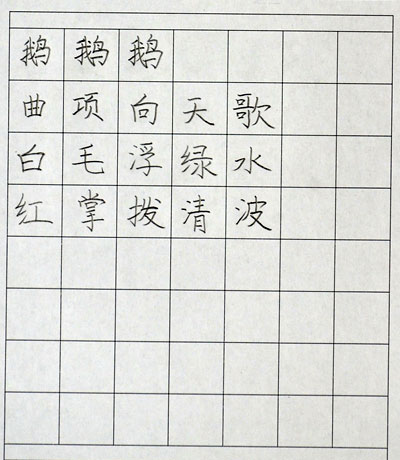 鹅鹅鹅
曲项向天歌
白毛浮绿水
红掌拨清波